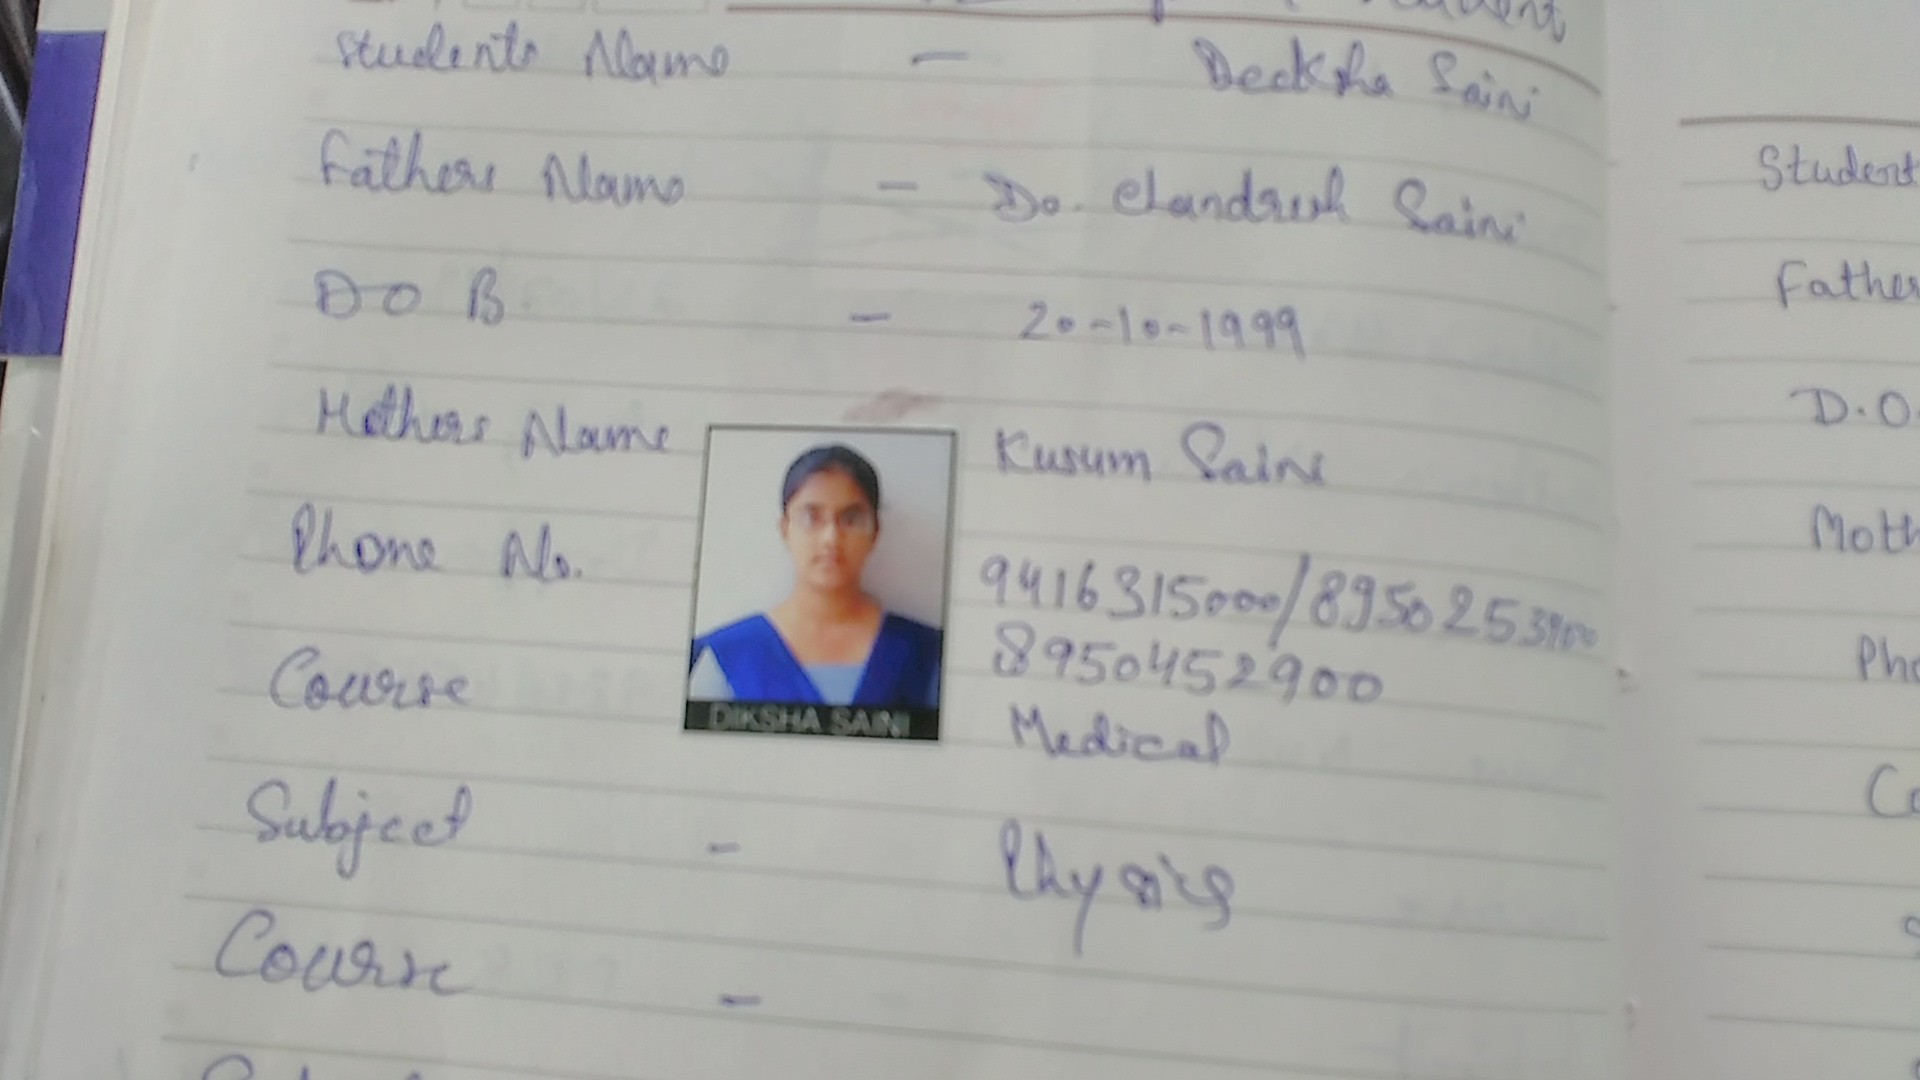 Students Name - Deeksha Saini
Fathers Name - Dr. Chandresh Saini
D O B - 20-10-1999
Mothers Name Kusum Saini
Phone No. 9416315000/8950253900
8950452900
Course Medical
DIKSHA SAINI
Subject - Physics
Course -
Student
Father
D.O.
Moth
Pho
Co